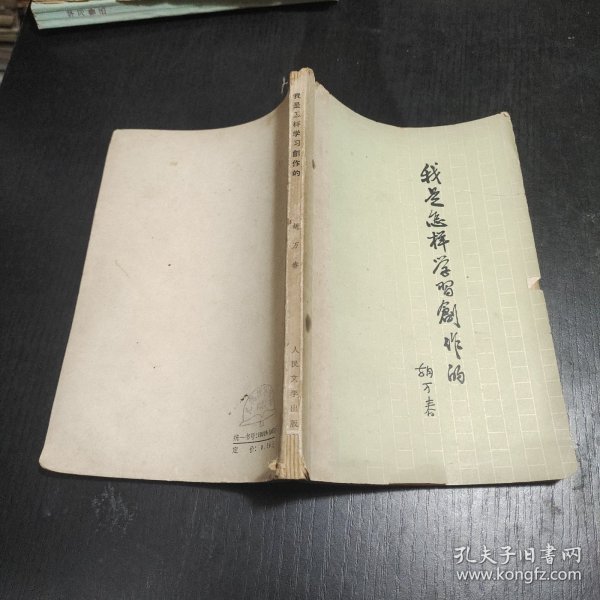 我是怎样学习創作的
胡万春
我是怎样学習創作的
胡万春
人民文学出版
定 价:0.
孔夫子旧书网
www.kongfz.com